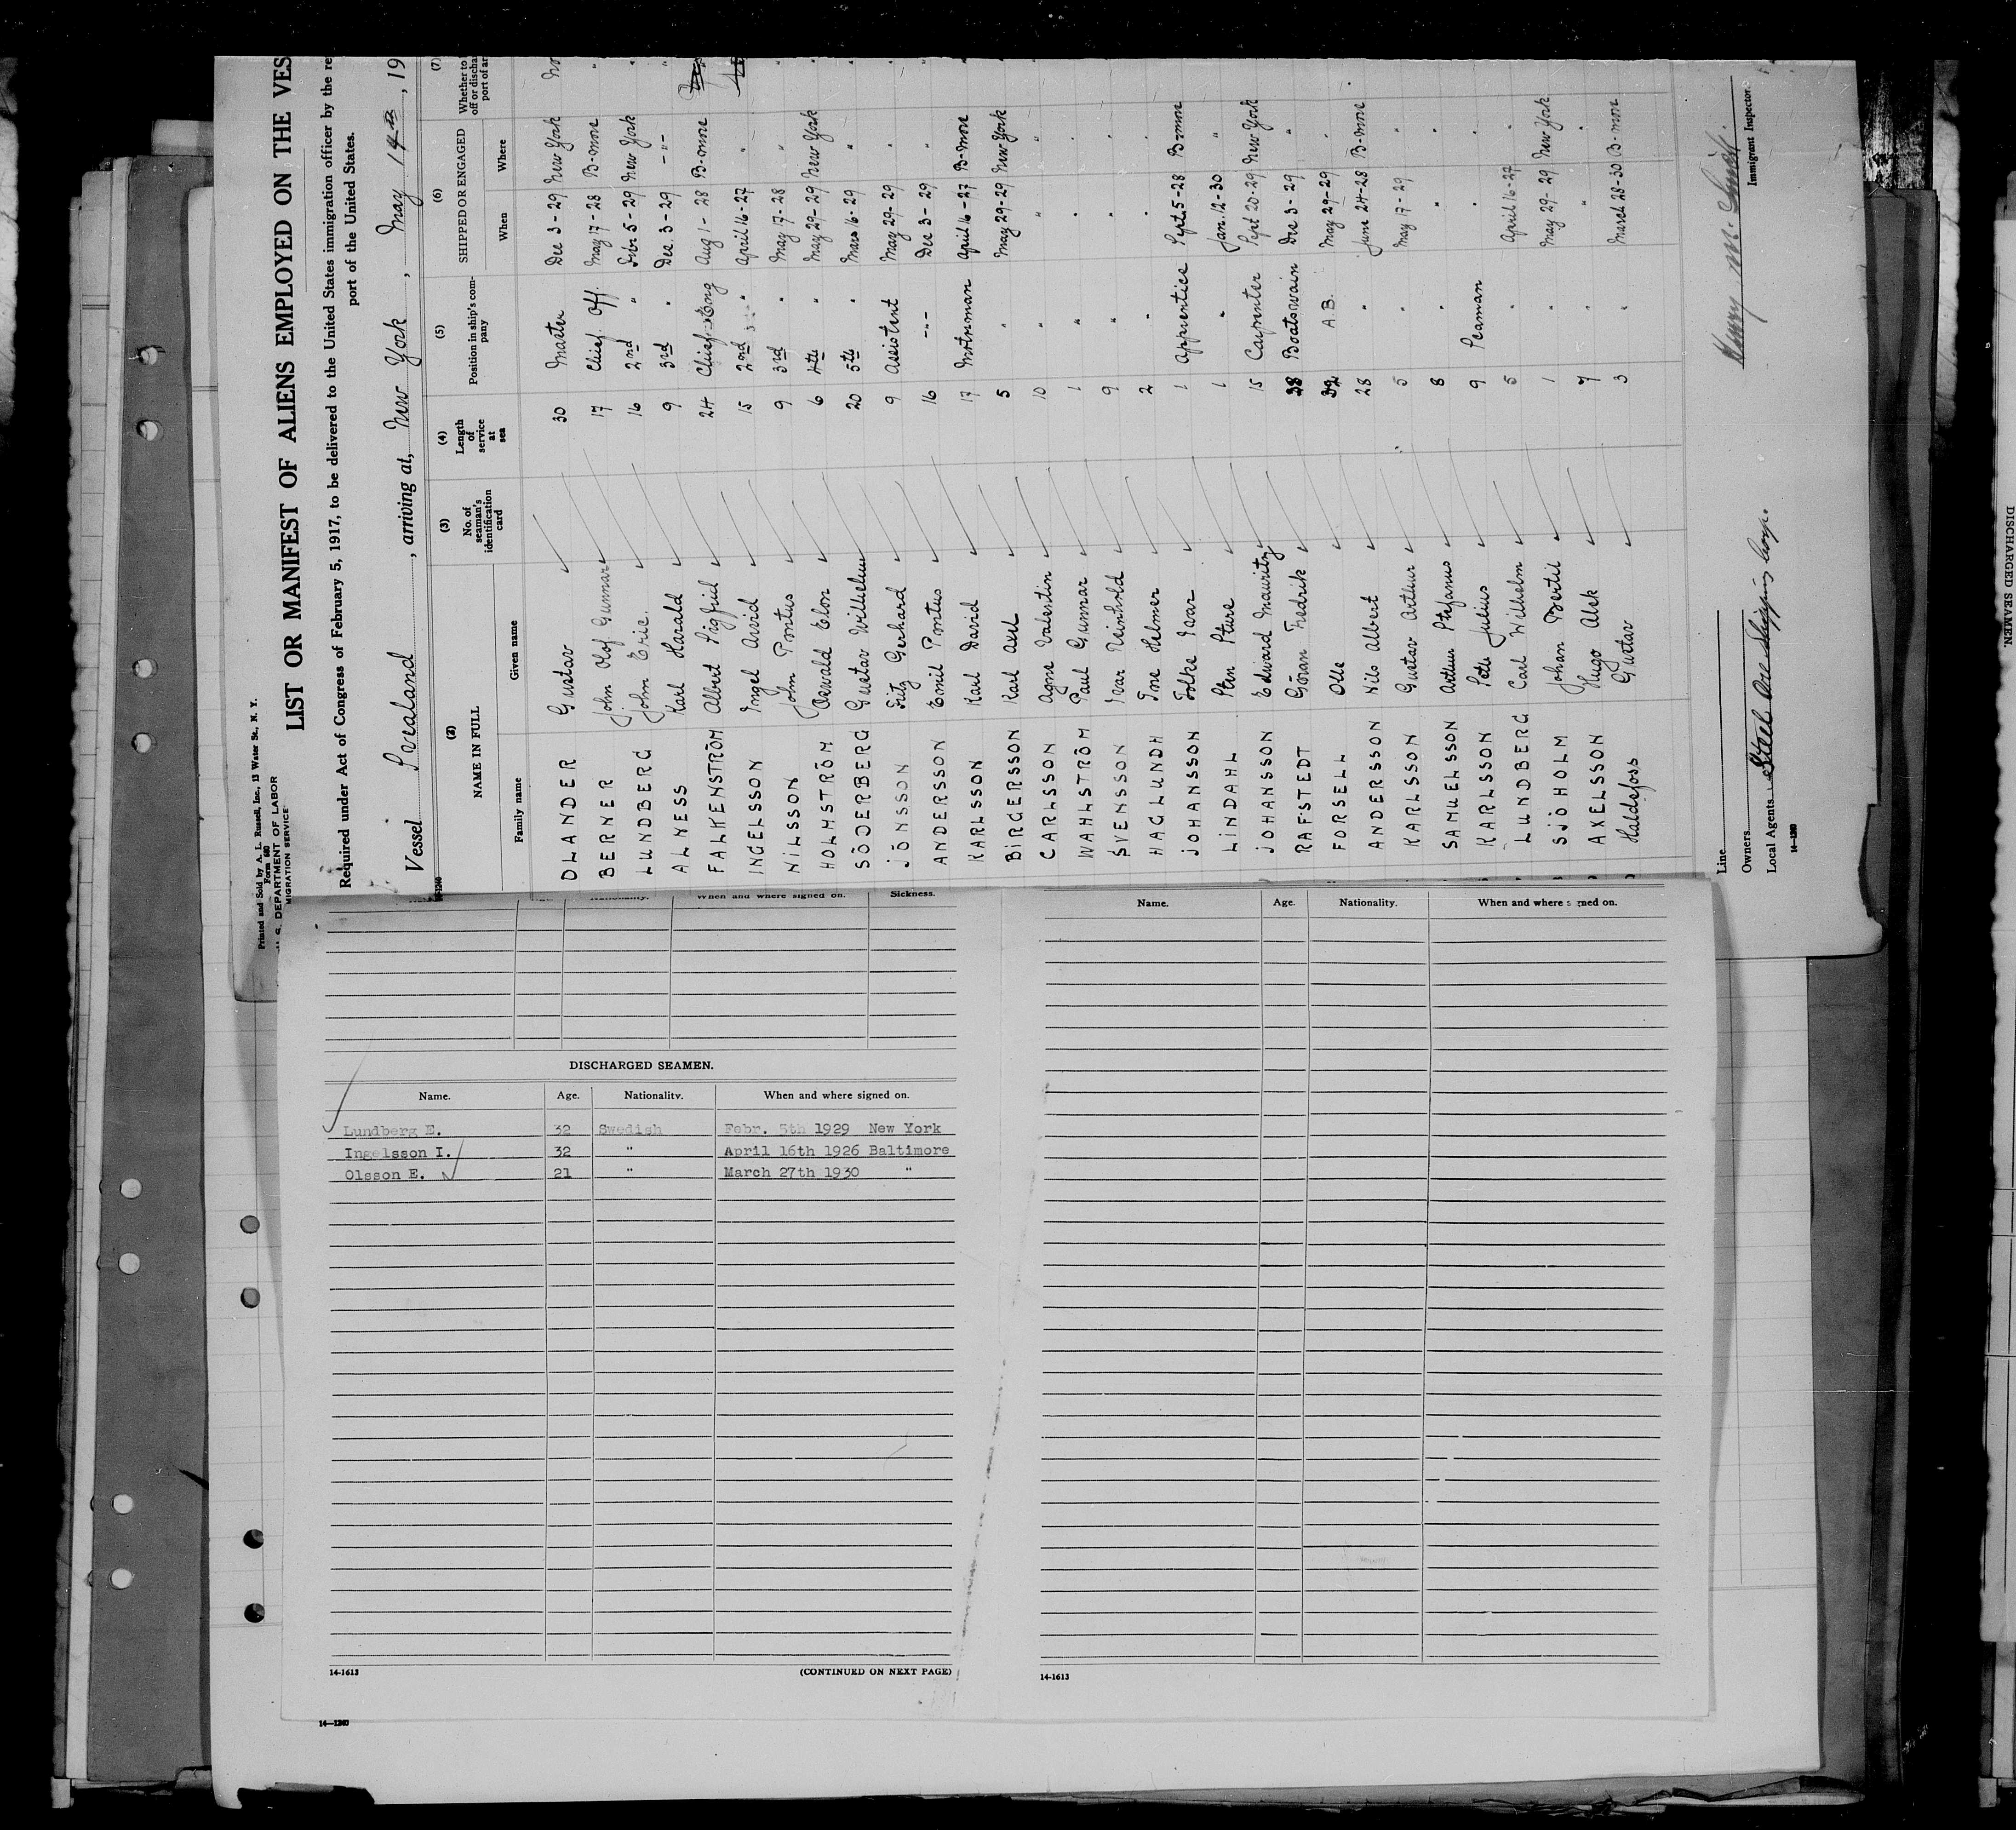 Printed and Sold by A. L. Russell, Inc., 13 Water St., N. Y.
Form 680
U. S. DEPARTMENT OF LABOR
MIGRATION SERVICE
LIST OR MANIFEST OF ALIENS EMPLOYED ON THE VES
Required under Act of Congress of February 5, 1917, to be delivered to the United States immigration officer by the re
port of the United States.
Vessel Svealand, arriving at, New York, May 14th, 19
14-1240
(2) (3) (4) (5) (6) (7)
NAME IN FULL No. of seaman's identification card Length of service at sea Position in ship's company SHIPPED OR ENGAGED Whether to off or discha port of ar
Family name Given name When Where
OLANDER Gustav 30 Master Dec 3-29 New York No
BERNER John Olof Gunnar 17 Chief Off. May 17-28 B-more "
LUNDBERG John Eric. 16 2nd " Febr 5-29 New York "
ALNESS Karl Harald 9 3rd " Dec. 3-29 -"- "
FALKENSTRÖM Albert Sigfrid 24 Chief Eng Aug 1-28 B-more
INGELSSON Ingel Arvid 15 2nd " April 16-27 "
NILSSON John Pontus 9 3rd " May 17-28 " "
HOLMSTRÖM Oswald Elon 6 4th " May 29-29 New York "
SÖDERBERG Gustav Wilhelm 20 5th " Mars 16-29 " "
JÖNSSON Fritz Gerhard 9 Assistent May 29-29 " "
ANDERSSON Emil Pontus 16 -"- Dec 3-29 " "
KARLSSON Karl David 17 Motorman April 16-27 B-more "
BIRGERSSON Karl Axel 5 " May 29-29 New York "
CARLSSON Agne Valentin 10 " " "
WAHLSTRÖM Paul Gunnar 1 " " "
SVENSSON Ivar Reinhold 9 " " "
HAGLUNDH Tore Helmer 2 " " "
JOHANSSON Folke Ivar 1 Apprentice Sept. 5-28 B-more
LINDAHL Sten Sture 1 " Jan. 12-30 "
JOHANSSON Edward Mauritz 15 Carpenter Sept 20-29 New York
RAFSTEDT Göran Fredrik 38 Boatswain Dec 3-29 "
FORSELL Olle A.B. May 29-29 "
ANDERSSON Nils Albert 28 " June 24-28 B-more
KARLSSON Gustav Arthur 5 " May 17-29 "
SAMUELSSON Arthur Stefanus 8 " " "
KARLSSON Sets Julius 9 Seaman " "
LUNDBERG Carl Wilhelm 5 " April 16-27 "
SJÖHOLM Johan Bertil 1 " May 29-29 New York
AXELSSON Hugo Alek 7 " " "
Haldsfoss Gustav 3 " March 28-30 B-more
Line
Owners
Local Agents Steel Ore Shipping Corp.
Immigrant Inspector.
14-1240
Nationality. When and where signed on. Sickness.
DISCHARGED SEAMEN.
Name. Age. Nationality. When and where signed on.
Lundberg E. 32 Swedish Febr. 5th 1929 New York
Ingelsson I. 32 " April 16th 1926 Baltimore
Olsson E. 21 " March 27th 1930 "
14-1613 (CONTINUED ON NEXT PAGE)
14-1240
Name. Age. Nationality. When and where signed on.
14-1613
DISCHARGED SEAMEN.